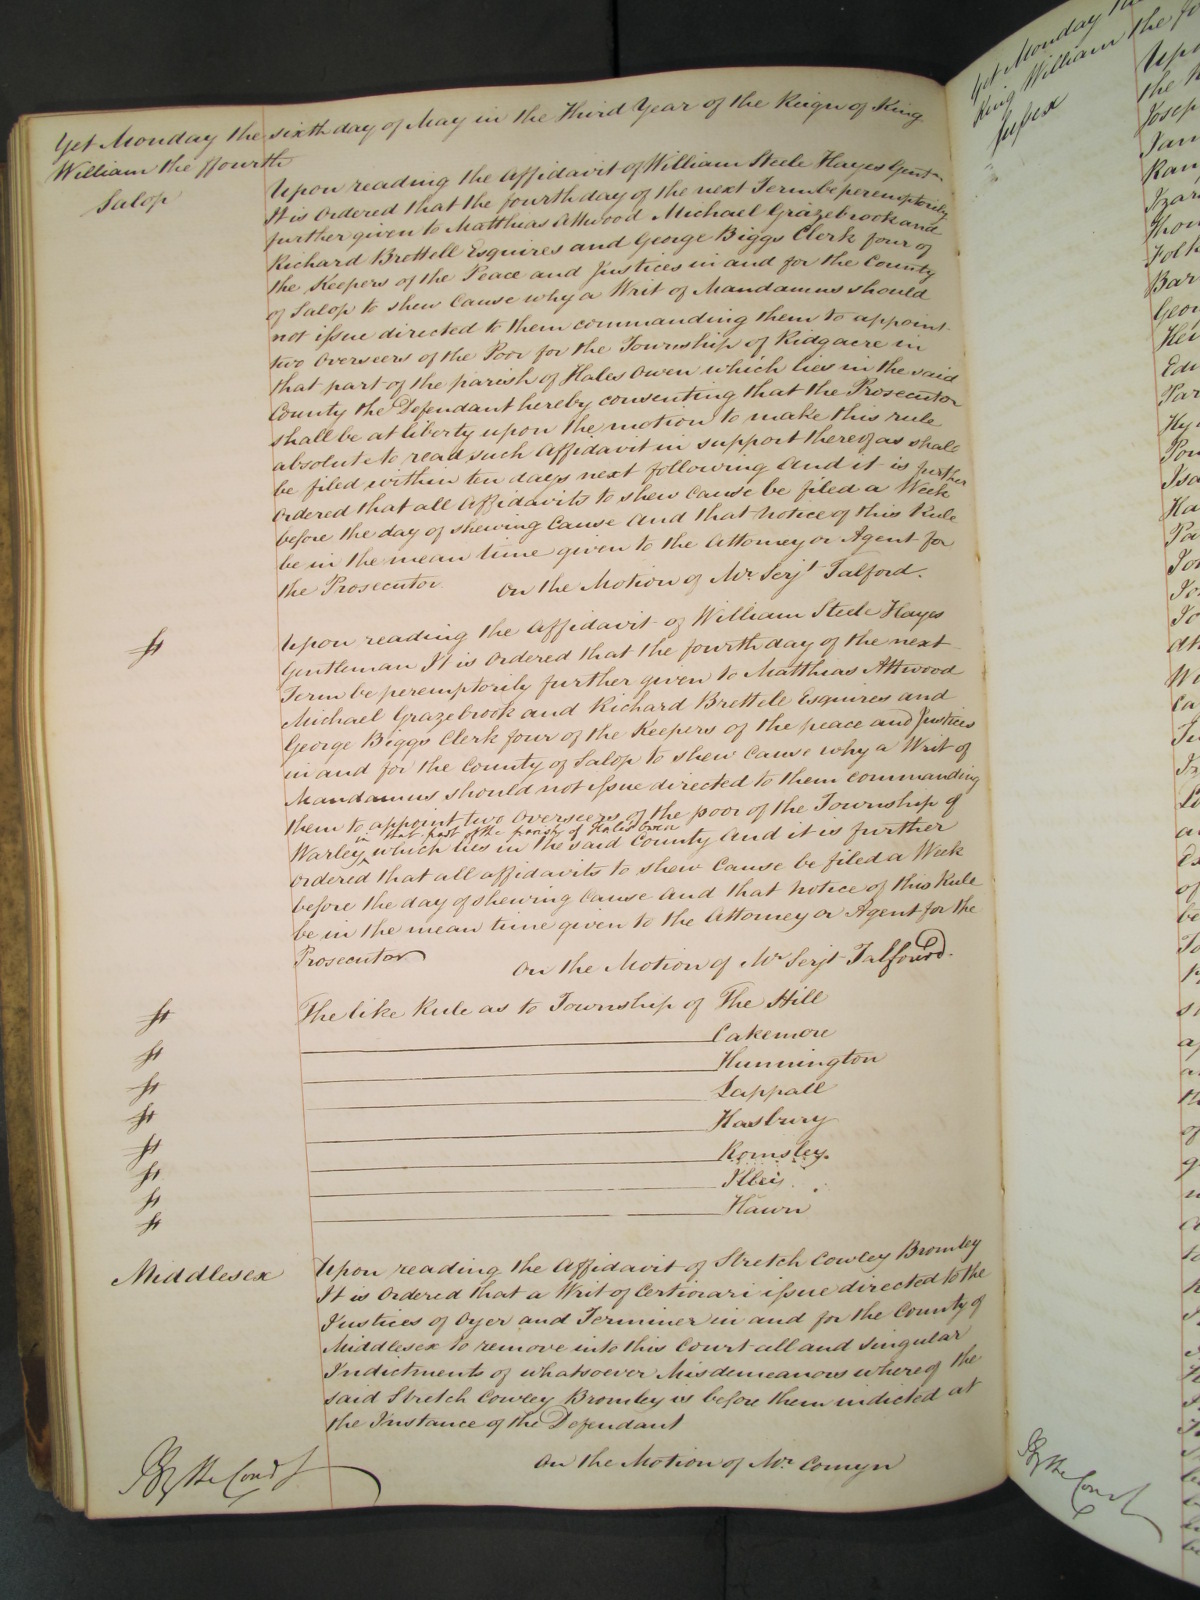 Yet Monday the sixth day of May in the Third Year of the Reign of King
William the ffourth
Salop
Upon reading the Affidavit of William Steele Hayes Gentn
It is Ordered that the fourth day of the next Term be peremptorily
further given to Matthias Attwood Michael Grazebrook and
Richard Brettell Esquires and George Biggs Clerk four of
the Keepers of the Peace and Justices in and for the County
of Salop to shew Cause why a Writ of Mandamus should
not issue directed to them commanding them to appoint
two Overseers of the Poor for the Township of Ridgacre in
that part of the parish of Hales Owen which lies in the said
County the Defendant hereby consenting that the Prosecutor
shall be at liberty upon the motion to make this rule
absolute to read such Affidavit in support thereof as shall
be filed within ten days next following And it is further
Ordered that all Affidavits to shew Cause be filed a Week
before the day of shewing Cause And that Notice of this Rule
be in the mean time given to the Attorney or Agent for
the Prosecutor On the Motion of Mr. Serjt Talford.
Upon reading the Affidavit of William Steele Hayes
Gentleman It is Ordered that the fourth day of the next
Term be peremptorily further given to Matthias Attwood
Michael Grazebrook and Richard Brettele Esquires and
George Biggs Clerk four of the Keepers of the peace and Justices
in and for the County of Salop to shew Cause why a Writ of
Mandamus should not issue directed to them commanding
them to appoint two Overseers of the poor of the Township of
in that part of the parish of Hales Owen
Warley which lies in the said County And it is further
Ordered that all affidavits to shew Cause be filed a Week
before the day of shewing Cause And that Notice of this Rule
be in the mean time given to the Attorney or Agent for the
Prosecutor
On the Motion of Mr Serjt Talfourd.
The like Rule as to Township of The Hill
Cakemore
Hunnington
Lappall
Hasbury
Romsley.
Illeis
Hawn
Middlesex
Upon reading the Affidavit of Stretch Cowley Bromley
It is Ordered that a Writ of Certiorari issue directed to the
Justices of Oyer and Terminer in and for the County of
Middlesex to remove into this Court all and singular
Indictments of whatsoever Misdemeanors whereof the
said Stretch Cowley Bromley is before them indicted at
the Instance of the Defendant
On the Motion of Mr. Comyn
By the Court
Yet Monday the
King William the fo
Sussex
By the Court